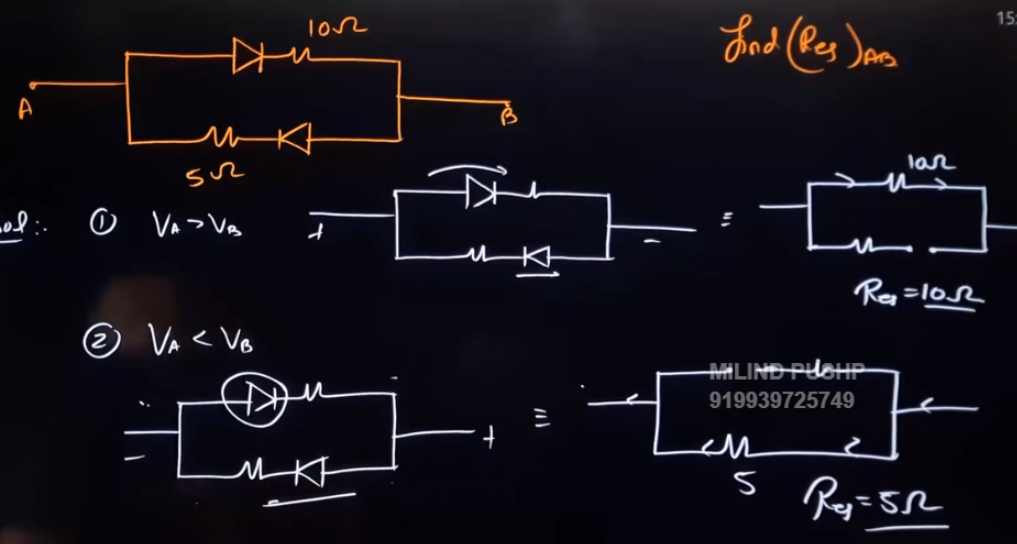 15:
10Ω
find (Req)AB
A
B
5Ω
sol:.
① VA > VB
+
-
≡
10Ω
Req = 10Ω
② VA < VB
-
+
≡
MILIND PUSHP
919939725749
5
Req = 5Ω